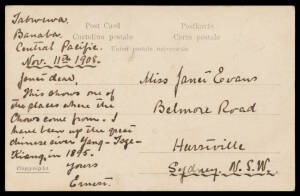 Post Card
Postkarte
Cartolina postale
Carte postale
Union postale universelle
Tabwewa.
Banaba.
Central Pacific.
Nov. 11th 1908.
Janet dear,
This shows one of
the places where the
Chows come from. I
have been up the great
chinese river Yang-Tsze-
Kiang, in 1895.
Yours
Ernest.
Miss Janet Evans
Belmore Road
Hurstville
Sydney. N.S.W.
Copyright